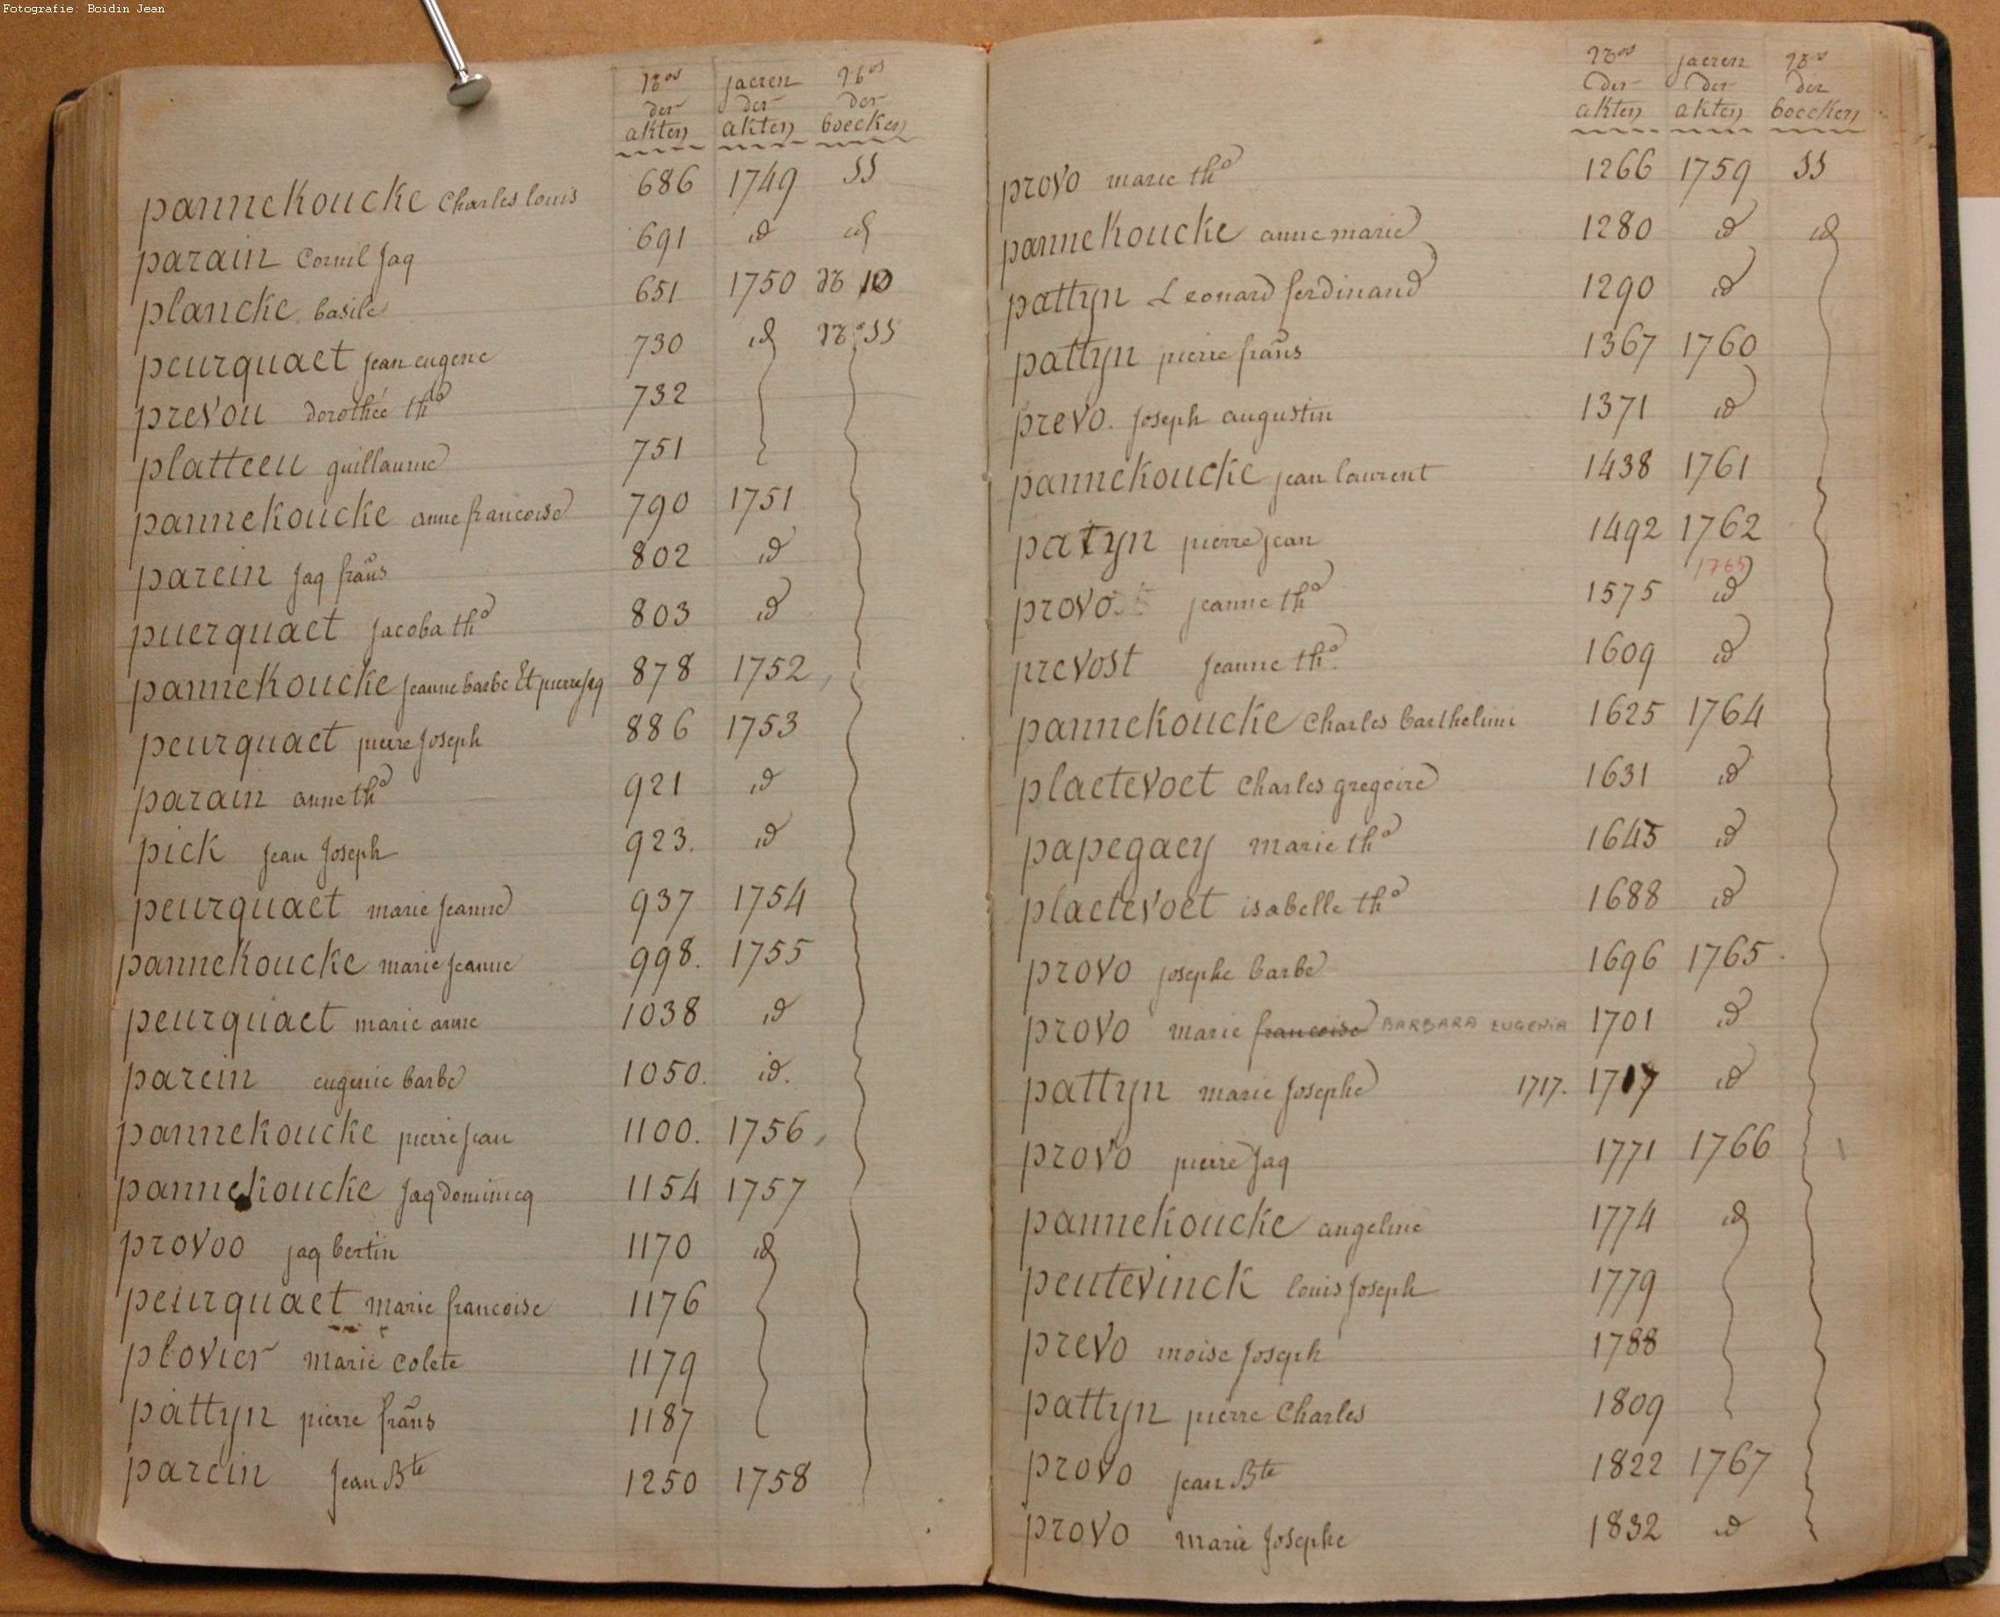 Fotografie: Boidin Jean
Nos jaeren Nos
der der der
akten akten boecken
pannekoucke Charles louis 686 1749 SS
parain Cornil Jaq 691 id id
plancke basile 651 1750 No 10
peurquaet jean eugene 730 id No SS
prevou dorothée tha 732
platteeu guillaume 751
pannekoucke anne francoise 790 1751
parein Jaq frans 802 id
puerquaet Jacoba tha 803 id
pannekoucke Jeanne barbe Et pierre Jaq 878 1752
peurquaet pierre Joseph 886 1753
parain anne tha 921 id
pick Jean Joseph 923. id
peurquaet marie Jeanne 937 1754
pannekoucke marie Jeanne 998. 1755
peurquaet marie anne 1038 id
parein eugenie barbe 1050. id.
pannekoucke pierre Jean 1100. 1756
pannekoucke Jaq dominicq 1154 1757
provoo jaq bertin 1170 id
peurquaet marie francoise 1176
plovier marie colete 1179
pattyn pierre frans 1187
parein Jean Bte 1250 1758
Nos jaeren Nos
der der der
akten akten boecken
provo marie tha 1266 1759 SS
pannekoucke anne marie 1280 id id
pattyn Leonard ferdinand 1290 id
pattyn pierre frans 1367 1760
prevo. Joseph augustin 1371 id
pannekoucke jean laurent 1438 1761
patyn pierre jean 1492 1762
1763
provo jeanne tha 1575 id
prevost Jeanne tha 1609 id
pannekoucke Charles barthelimi 1625 1764
plaetevoet Charles gregoire 1631 id
papegaey marie tha 1645 id
plaetevoet isabelle tha 1688 id
provo josephe barbe 1696 1765.
provo marie francoise BARBARA EUGENIA 1701 id
pattyn marie Josephe 1717. 1717 id
provo pierre Jaq 1771 1766
pannekoucke angeline 1774 id
peutevinck louis Joseph 1779
prevo moise Joseph 1788
pattyn pierre Charles 1809
provo jean Bte 1822 1767
provo marie Josephe 1832 id